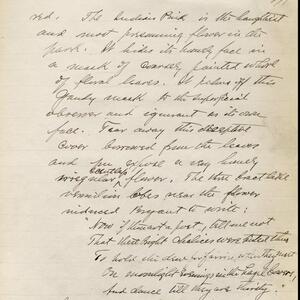 red. The Indian Pink is the haughtiest
and most presuming flower in the
park. It hides its homely face in
a mask of gaudy painted whorl
of floral leaves. It palms off this
gaudy mask to the superficial
observer and ignorant as its own
face. Tear away this deceptive
cover borrowed from the leaves
and you expose a very homely
irregular flower. The three coat like
vermilion lobes near the flower
induced Bryant to write:
"Now, if thou art a poet, tell me not
That these bright chalices were tinted thus
To hold the dew for fairies, when they meet
On moonlight evenings, in the hazel bowers,
And dance till they are thirsty."